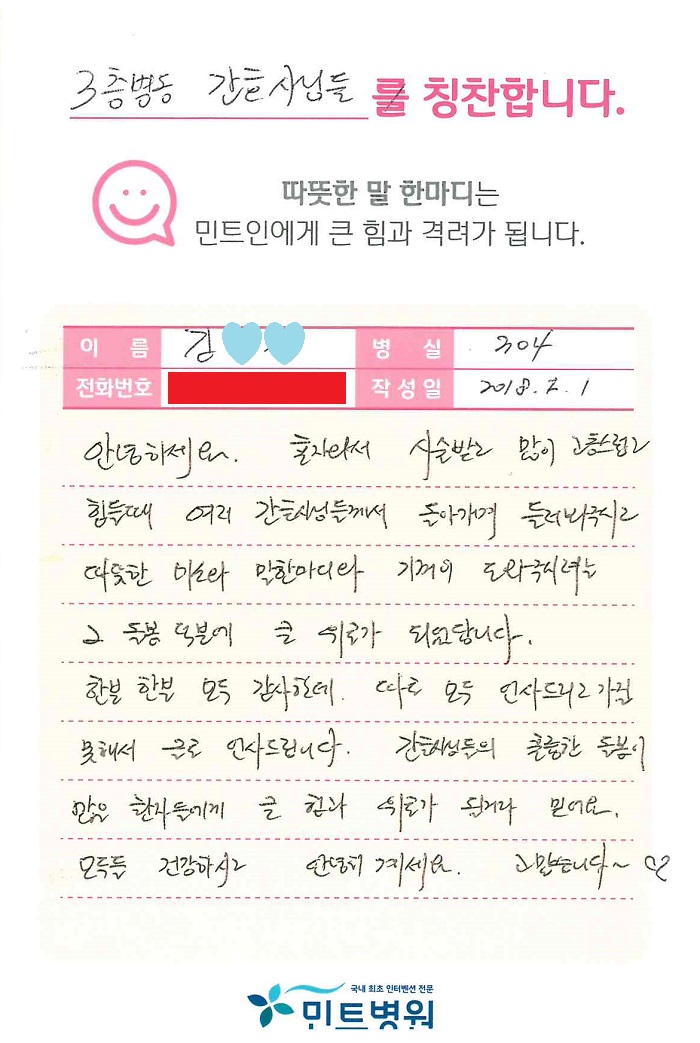 3층병동 간호사님들 를 칭찬합니다.
따뜻한 말 한마디는
민트인에게 큰 힘과 격려가 됩니다.
이 름 김 병 실 304
전화번호 작성일 2018. 7. 1
안녕하세요. 혼자와서 시술받고 많이 고통스럽고
힘들때 여러 간호사님들께서 돌아가며 들러봐주시고
따뜻한 미소와 말한마디와 기꺼이 도와주시려는
그 돌봄 덕분에 큰 위로가 되었답니다.
한분 한분 모두 감사한데. 따로 모두 인사드리고 가질
못해서 글로 인사드립니다. 간호사님들의 훌륭한 돌봄이
많은 환자들에게 큰 힘과 위로가 될거라 믿어요.
모두들 건강하시고 안녕히 계세요. 고맙습니다~ ♡
국내 최초 인터벤션 전문
민트병원